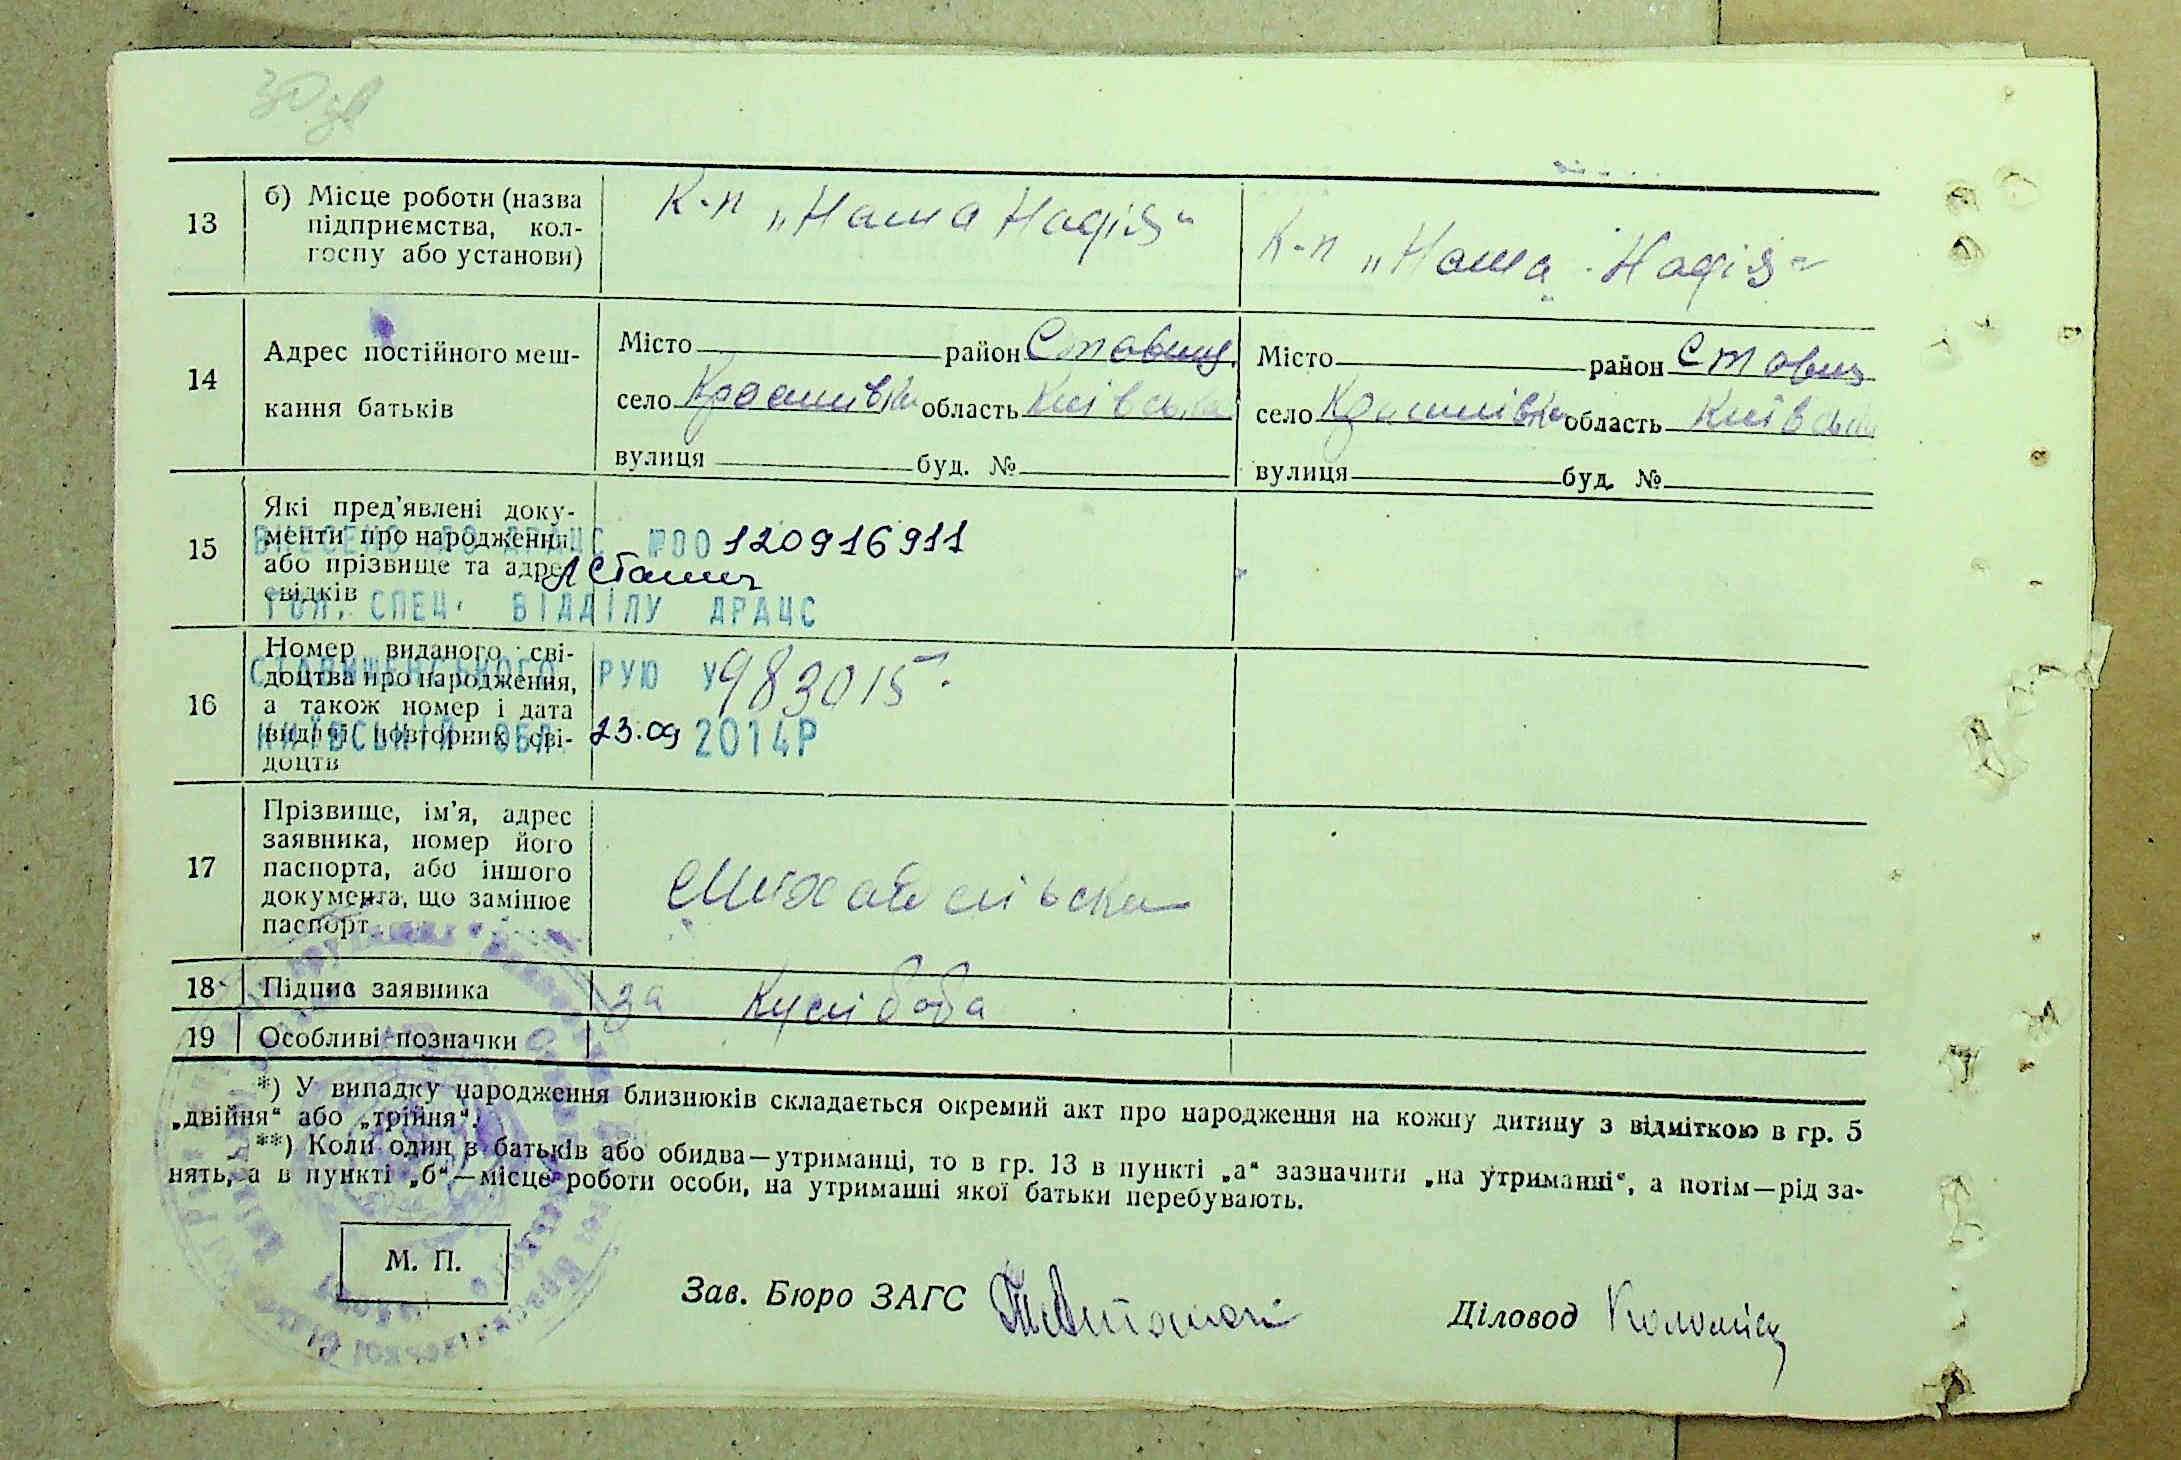 30зв
13
б) Місце роботи (назва
підприємства, кол-
госпу або установи)
К-п „Наша Надія“
К-п „Наша Надія“
14
Адрес постійного меш-
кання батьків
Місто район Ставищ.
село Крашивка область Київська
вулиця буд. №
Місто район Ставищ
село область Київська
вулиця буд. №
15
Які пред'явлені доку-
менти про народження
або прізвище та адрес
свідків
ВНЕСЕНО ДО ДРАЦС №00120916911
ГОЛ. СПЕЦ. ВІДДІЛУ ДРАЦС
16
Номер виданого сві-
доцтва про народження,
а також номер і дата
видачі повторних сві-
доцтв
СТАВИЩЕНСЬКОГО РУЮ У
983015
КИЇВСЬКІЙ ОБЛ. 23.09 2014Р
17
Прізвище, ім'я, адрес
заявника, номер його
паспорта, або іншого
документа, що замінює
паспорт
18
Підпис заявника
за Кулібаба
19
Особливі позначки
*) У випадку народження близнюків складається окремий акт про народження на кожну дитину з відміткою в гр. 5
„двійня“ або „трійня“.
**) Коли один з батьків або обидва—утриманці, то в гр. 13 в пункті „а“ зазначити „на утриманні“, а потім—рід за-
нять, а в пункті „б“—місце роботи особи, на утриманні якої батьки перебувають.
М. П.
Зав. Бюро ЗАГС
Діловод Коломієц